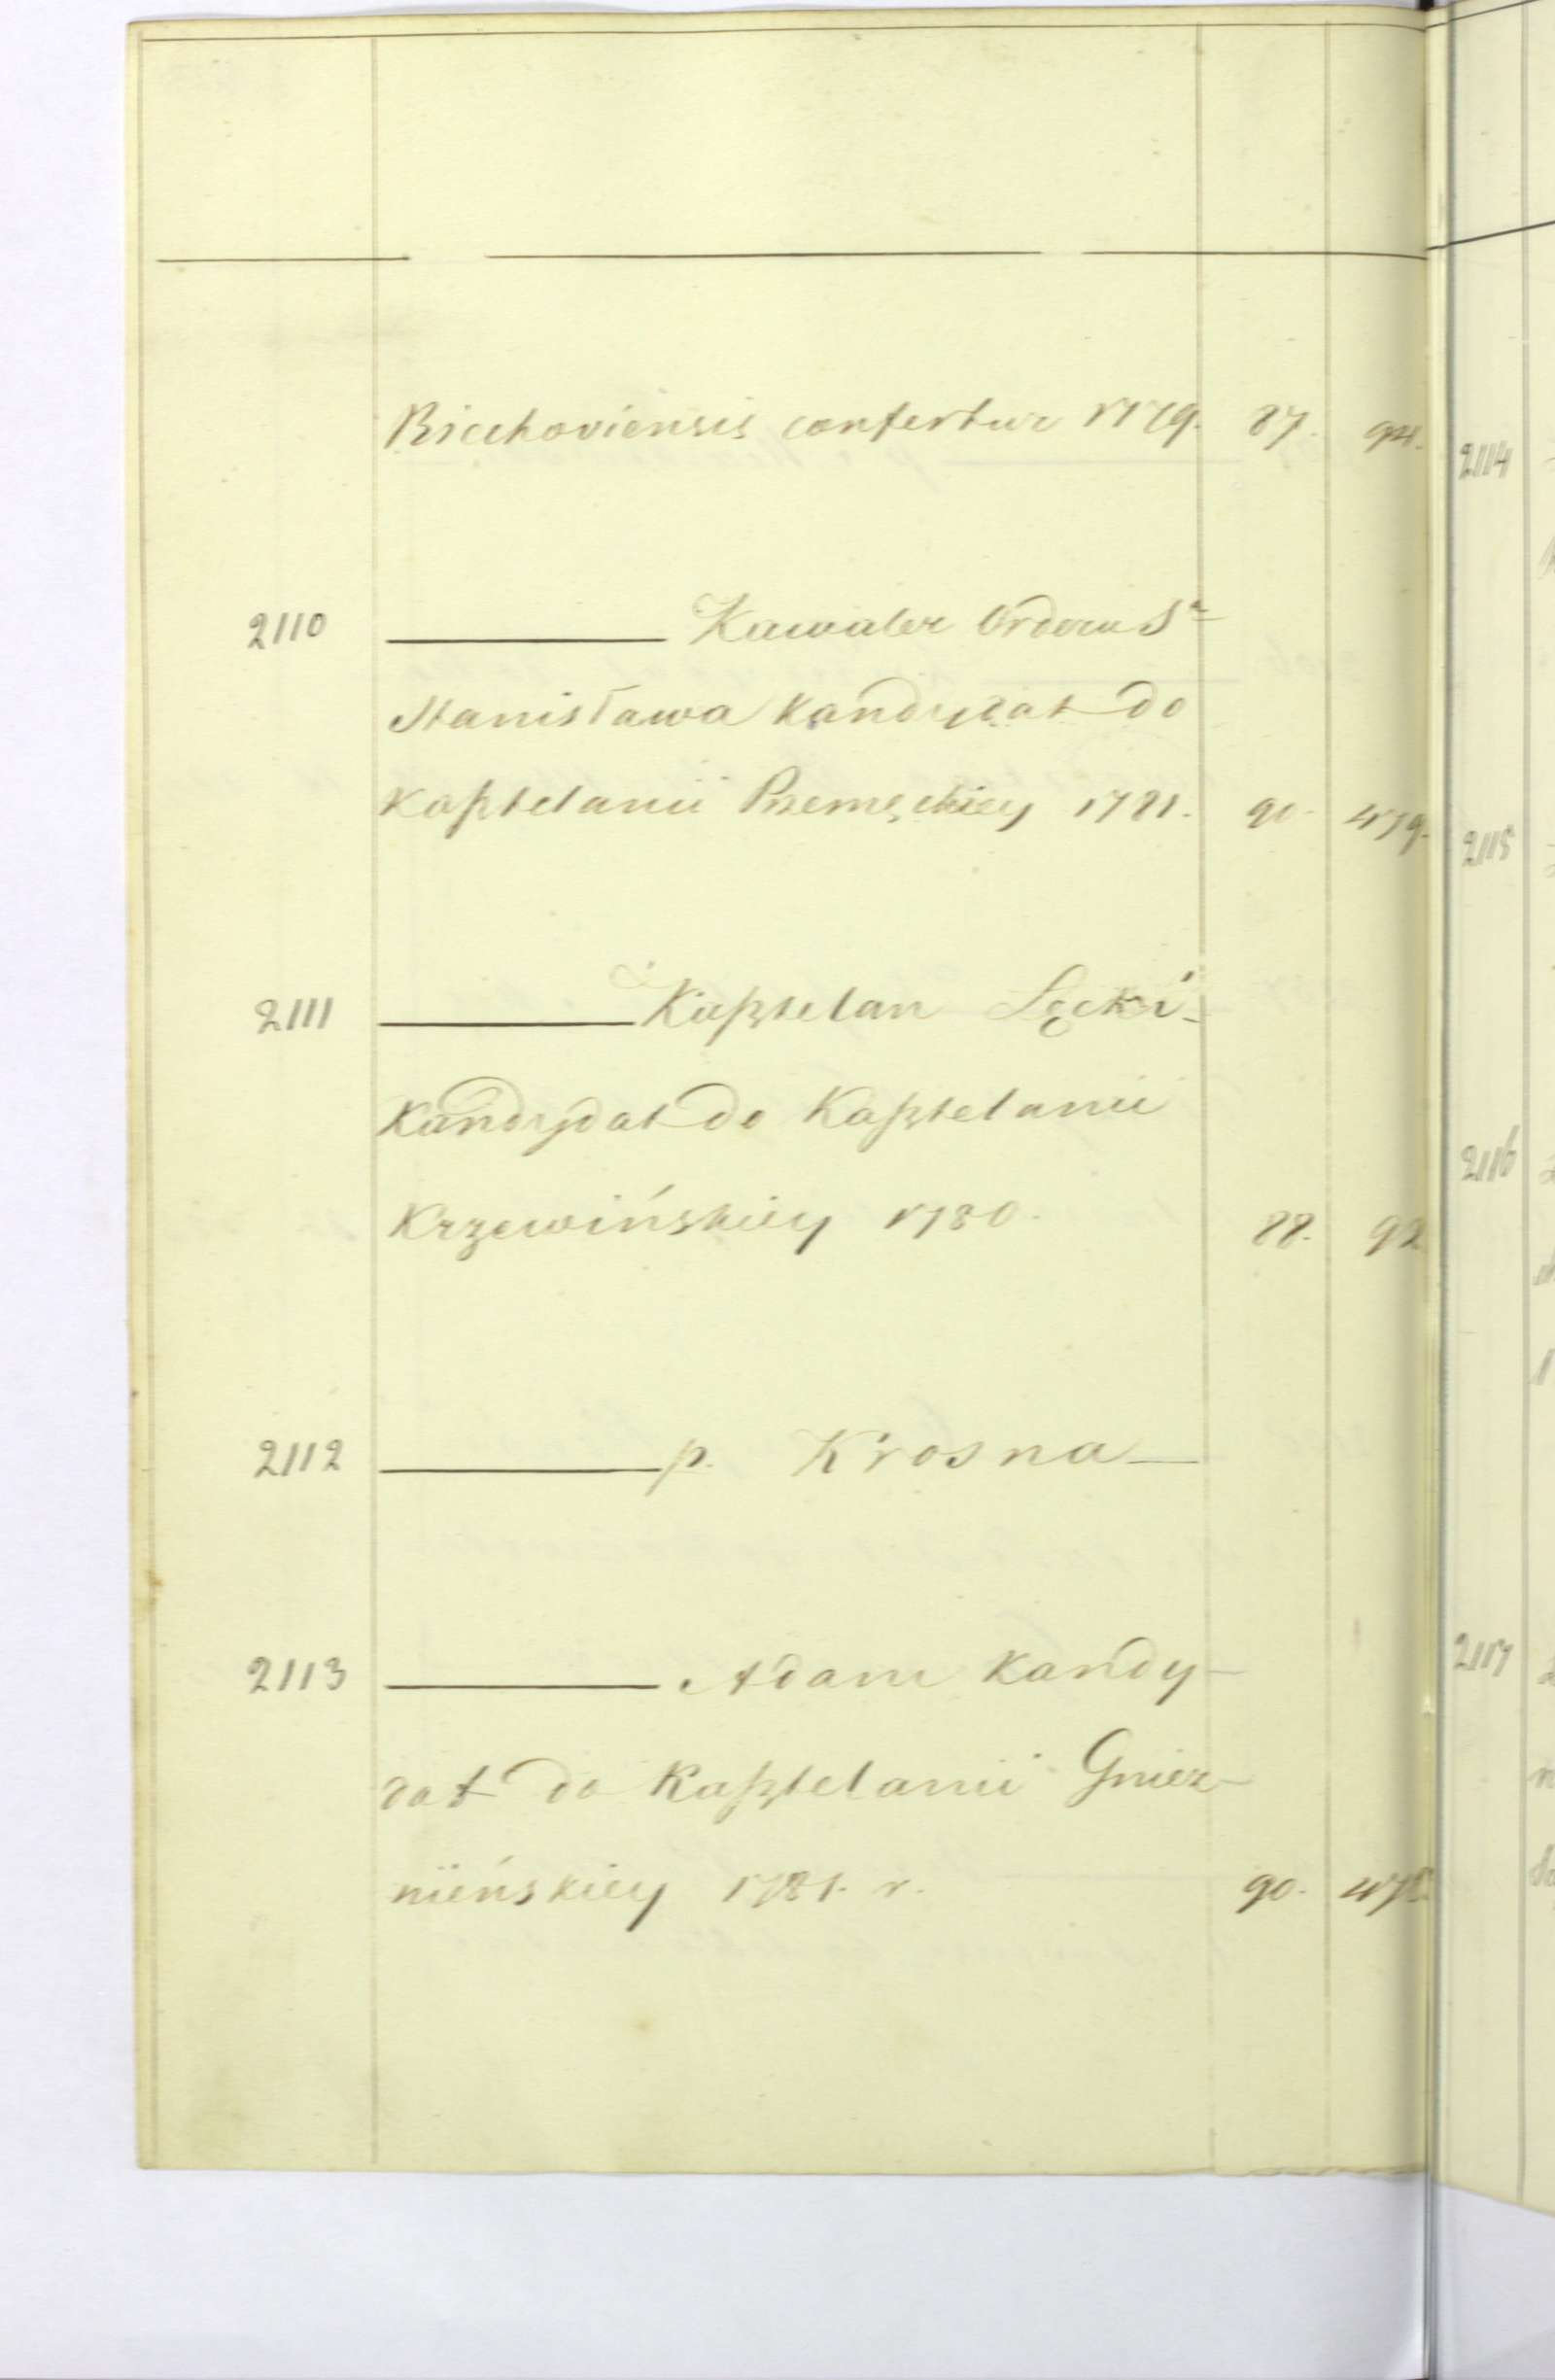 Biechoviensis confertur 1779. 87. 94.
2110 ——— Kawaler Orderu Sº
Stanisława kandydat do
Kasztelanii Przemęckiey 1781. 90. 479.
2111 ——— Kasztelan Lęcki
Kandydat do Kasztelanii
Krzewińskiey 1780. 88. 92
2112 ——— p. Krosna —
2113 ——— Adam kandy-
dat do Kasztelanii Gniez-
nieńskiey 1781. r. 90.
2114
2115
2116
2117